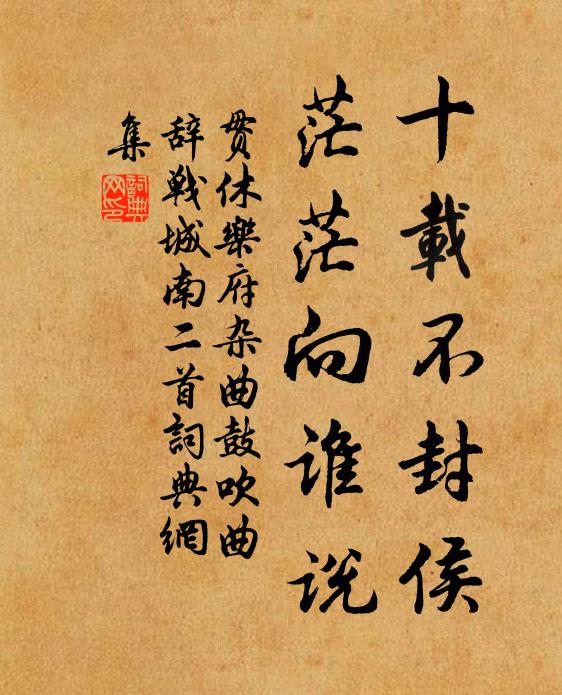 十載不封侯
茫茫向誰説
贯休樂府杂曲鼓吹曲
辞戰城南二首詞典網
集
詞典網印